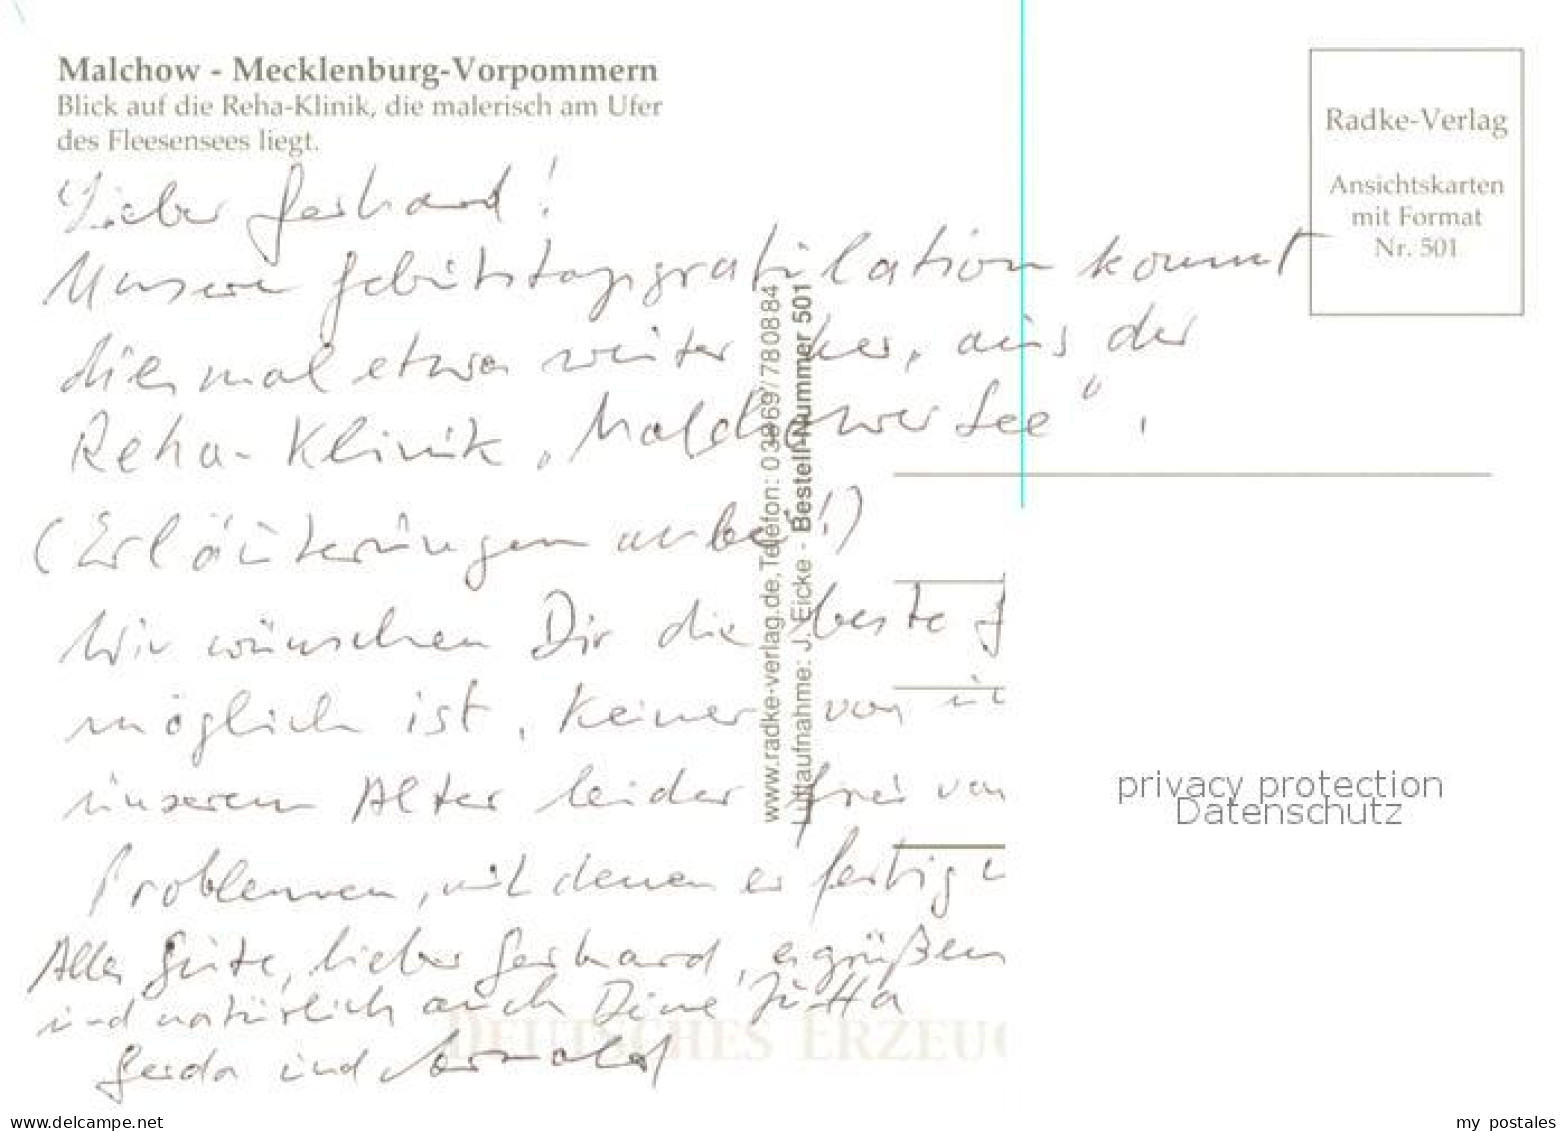 Malchow - Mecklenburg-Vorpommern
Blick auf die Reha-Klinik, die malerisch am Ufer
des Fleesensees liegt.
Radke-Verlag
Ansichtskarten
mit Format
Nr. 501
Lieber Gerhard!
Unsere Geburtstagsgratulation kommt
diesmal etwas weiter her, aus der
Reha-Klinik „Malchower See",
(Erläuterungen anbei!)
Wir wünschen Dir die beste
möglich ist. Keiner von
unserem Alter leider frei von
Problemen, mit denen er fertig
Alles Gute, lieber Gerhard, es grüßen
und natürlich auch Deine Jutta
Gerda und Arnold
www.radke-verlag.de, Telefon: 03869/780884
Luftaufnahme: J. Eicke - Bestell-Nummer 501
privacy protection
Datenschutz
DEUTSCHES ERZEUG
www.delcampe.net
my postales